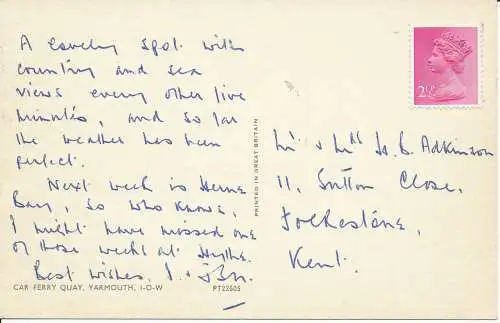 A lovely spot with
country and sea
views every other five
minutes, and so far
the weather has been
perfect.
Next week is Herne
Bay, so who knows,
I might have missed one
of those weeks at Hythe.
Best wishes,
CAR FERRY QUAY, YARMOUTH, I-O-W
PT22505
PRINTED IN GREAT BRITAIN
2½P
Mr & Mrs H. B. Adkinson
11, Sutton Close,
Folkestone,
Kent.